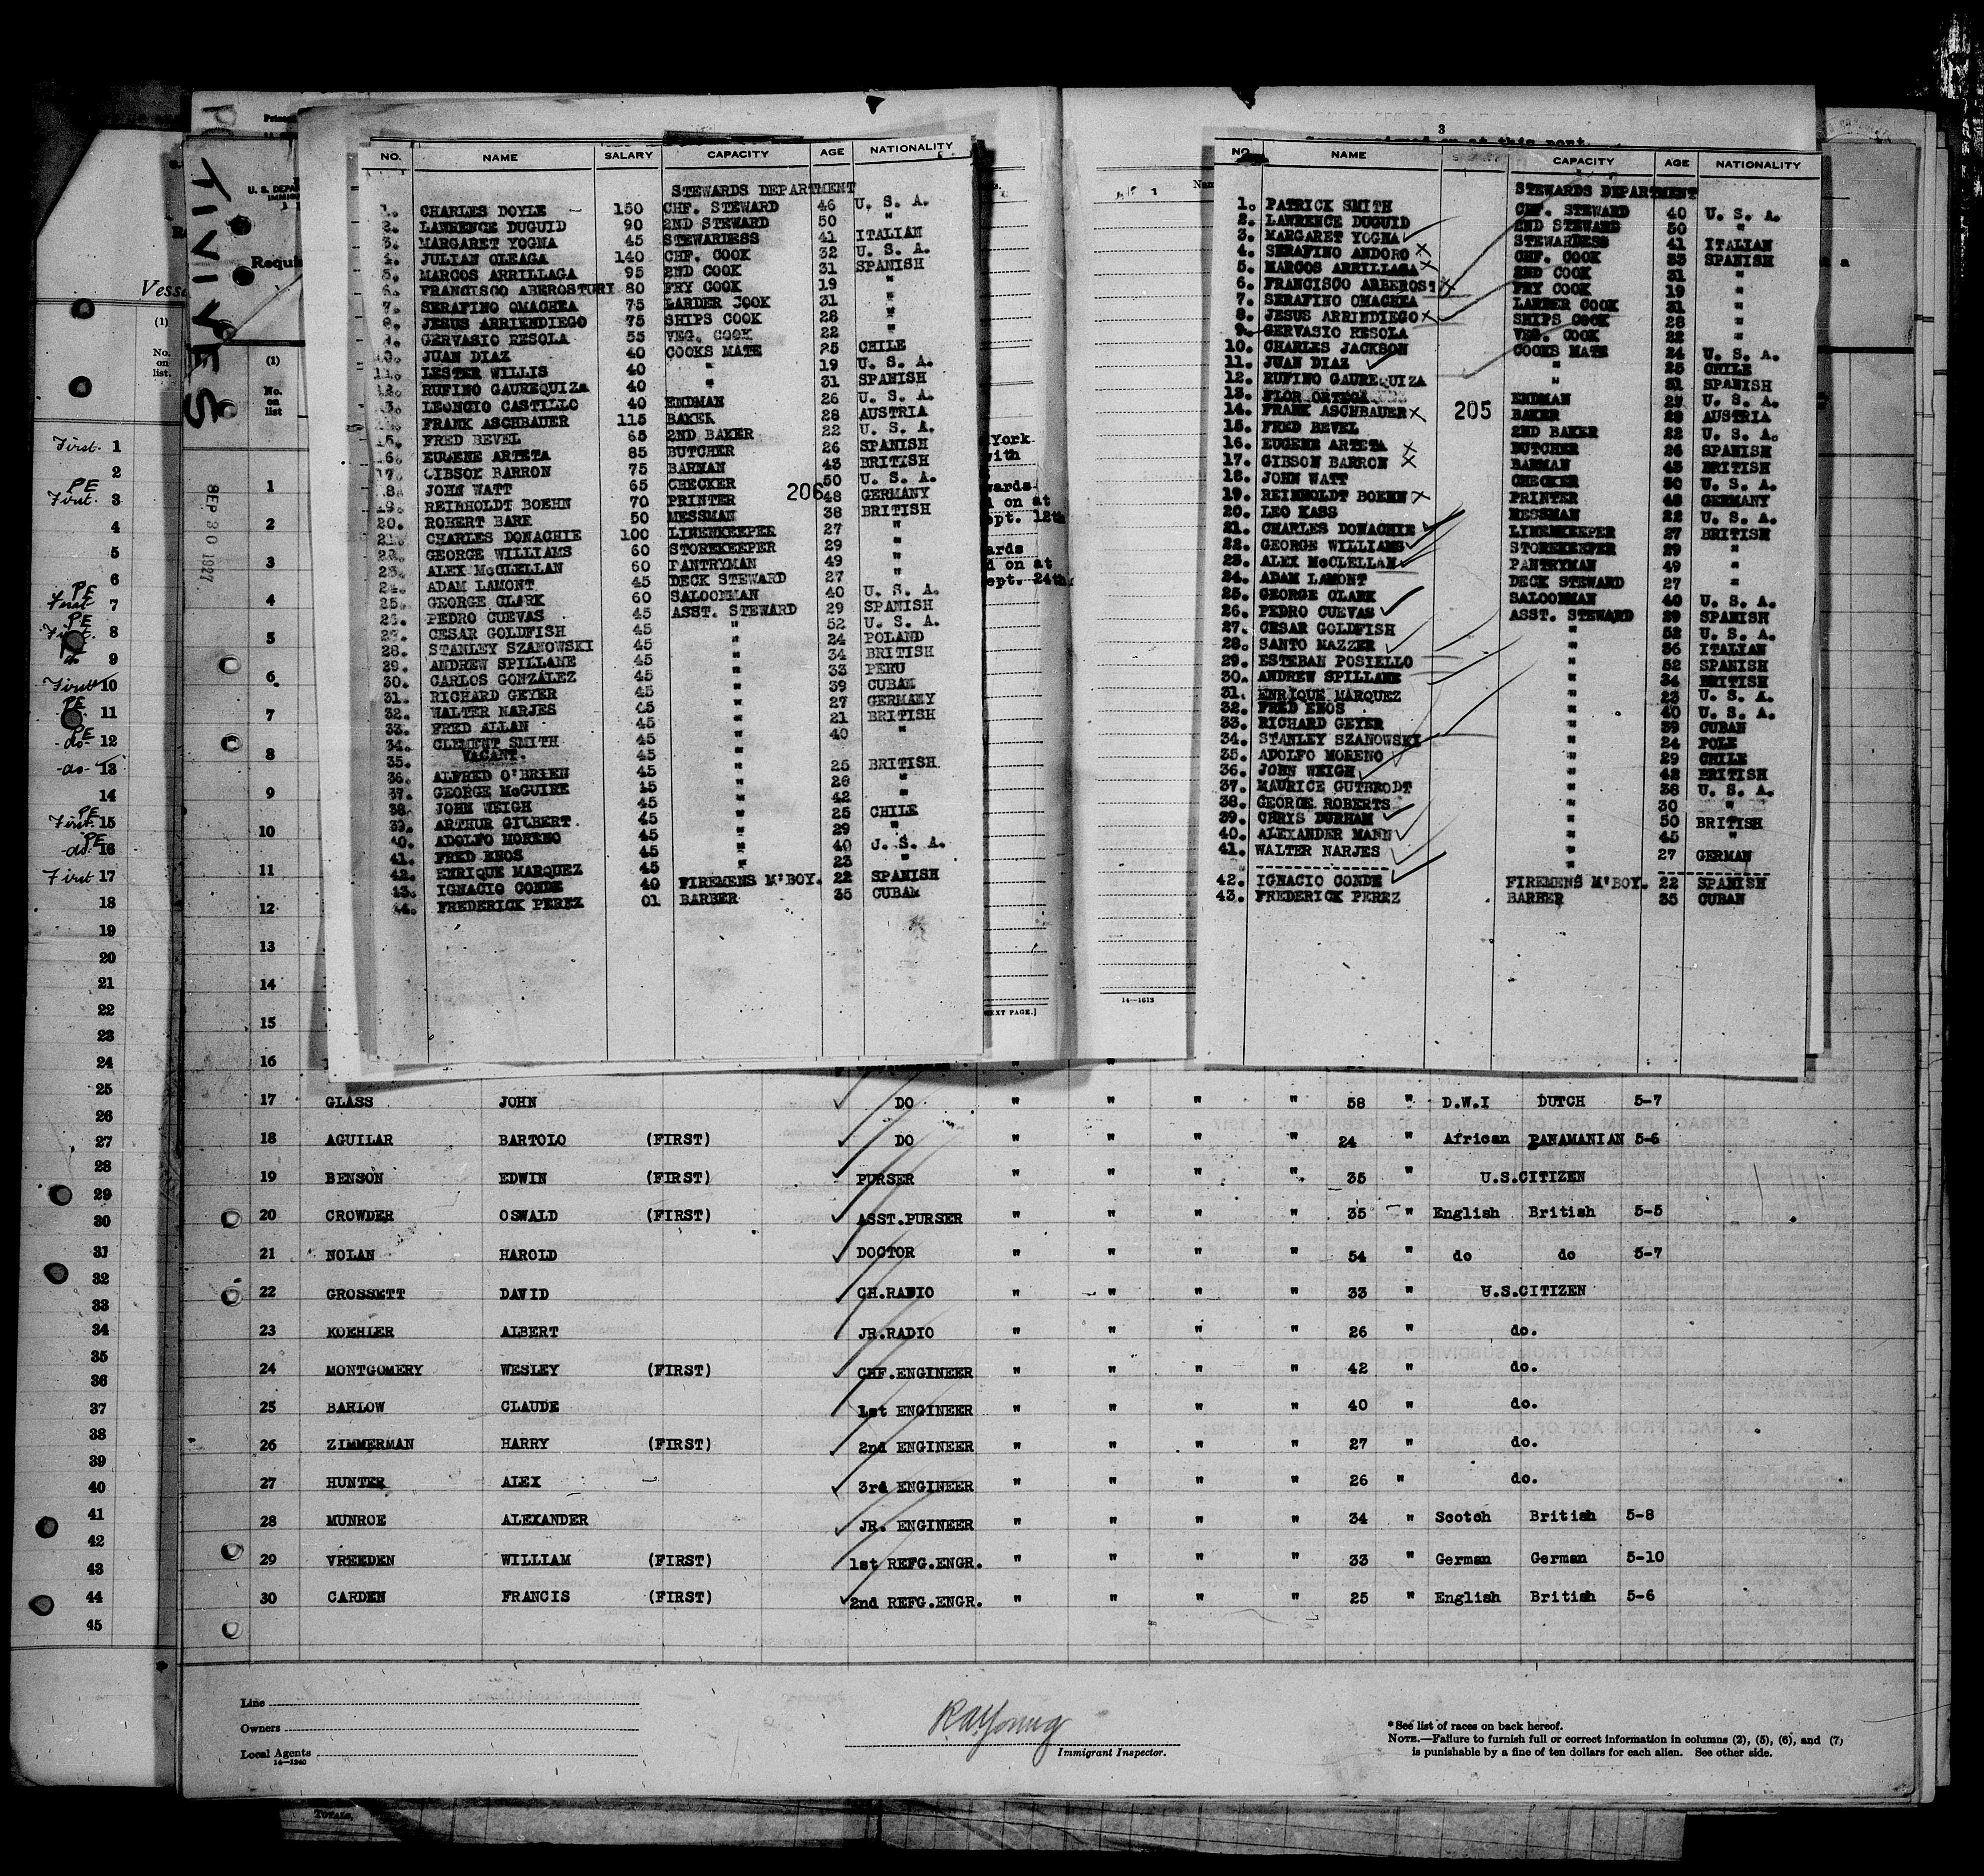 TIVIVES
SEP 30 1927
NO. NAME SALARY CAPACITY AGE NATIONALITY
STEWARDS DEPARTMENT
1. CHARLES DOYLE 150 CHF. STEWARD 46 U. S. A.
2. LAWRENCE DUGUID 90 2ND STEWARD 50 "
3. MARGARET YOGNA 45 STEWARDESS 41 ITALIAN
4. JULIAN OLEAGA 140 CHF. COOK 32 U. S. A.
5. MARCOS ARRILLAGA 95 2ND COOK 31 SPANISH
6. FRANCISCO ABEROSTURI 80 FRY COOK 19 "
7. SERAFINO OMACHEA 75 LARDER COOK 31 "
8. JESUS ARRIENDIEGO 75 SHIPS COOK 28 "
9. GERVASIO RESOLA 55 VEG. COOK 22 "
10. JUAN DIAZ 40 COOKS MATE 25 CHILE
11. LESTER WILLIS 40 " 19 U. S. A.
12. RUFINO GAUREQUIZA 40 " 31 SPANISH
13. LEONCIO CASTILLO 40 ENDMAN 26 U. S. A.
14. FRANK ASCHBAUER 115 BAKER 28 AUSTRIA
15. FRED BEVEL 65 2ND BAKER 22 U. S. A.
16. EUGENE ARTETA 85 BUTCHER 26 SPANISH
17. GIBSON BARRON 75 BARMAN 43 BRITISH
18. JOHN WATT 65 CHECKER 50 U. S. A.
206
19. REINHOLDT BOEHN 70 PRINTER 48 GERMANY
20. ROBERT BARR 50 MESSMAN 38 BRITISH
21. CHARLES DONACHIE 100 LINENKEEPER 27 "
22. GEORGE WILLIAMS 60 STOREKEEPER 29 "
23. ALEX McCLELLAN 60 PANTRYMAN 49 "
24. ADAM LAMONT 45 DECK STEWARD 27 "
25. GEORGE CLARK 60 SALOONMAN 40 U. S. A.
26. PEDRO CUEVAS 45 ASST. STEWARD 29 SPANISH
27. CESAR GOLDFISH 45 " 52 U. S. A.
28. STANLEY SZANOWSKI 45 " 24 POLAND
29. ANDREW SPILLANE 45 " 34 BRITISH
30. CARLOS GONZALEZ 45 " 33 PERU
31. RICHARD GEYER 45 " 39 CUBAN
32. WALTER NARJES 45 " 27 GERMANY
33. FRED ALLAN 45 " 21 BRITISH
34. CLEMENT SMITH 45 " 40 "
35. VACANT. 45 "
36. ALFRED O'BRIEN 45 " 25 BRITISH
37. GEORGE McGUIRE 45 " 26 "
38. JOHN WEIGH 45 " 42 "
39. ARTHUR GILBERT 45 " 25 CHILE
40. ADOLFO MORENO 45 " 29 "
41. FRED ENOS 45 " 40 U. S. A.
42. ENRIQUE MARQUEZ 45 " 23 "
43. IGNACIO CONDE 40 FIREMENS M'BOY. 22 SPANISH
44. FREDERICK PEREZ 01 BARBER 35 CUBAN
3
NO. NAME CAPACITY AGE NATIONALITY
STEWARDS DEPARTMENT
1. PATRICK SMITH CHF. STEWARD 40 U. S. A.
2. LAWRENCE DUGUID 2ND STEWARD 50 "
3. MARGARET YOGNA STEWARDESS 41 ITALIAN
4. SERAFINO ANDORO CHF. COOK 33 SPANISH
5. MARCOS ARRILLAGA 2ND COOK 31 "
6. FRANCISCO ARBEROST FRY COOK 19 "
7. SERAFINO OMACHEA LARDER COOK 31 "
8. JESUS ARRINDIEGO SHIPS COOK 28 "
9. GERVASIO RESOLA VEG. COOK 22 "
10. CHARLES JACKSON COOKS MATE 24 U. S. A.
11. JUAN DIAZ " 25 CHILE
12. RUFINO GAUREQUIZA " 31 SPANISH
13. FLOR ORTEGA ENDMAN 27 U. S. A.
14. FRANK ASCHBAUER BAKER 28 AUSTRIA
205
15. FRED BEVEL 2ND BAKER 22 U. S. A.
16. EUGENE ARTETA BUTCHER 26 SPANISH
17. GIBSON BARRON BARMAN 43 BRITISH
18. JOHN WATT CHECKER 50 U. S. A.
19. REINHOLDT BOEHN PRINTER 48 GERMANY
20. LEO KASS MESSMAN 22 U. S. A.
21. CHARLES DONACHIE LINENKEEPER 27 BRITISH
22. GEORGE WILLIAMS STOREKEEPER 29 "
23. ALEX McCLELLAN PANTRYMAN 49 "
24. ADAM LAMONT DECK STEWARD 27 "
25. GEORGE CLARK SALOONMAN 40 U. S. A.
26. PEDRO CUEVAS ASST. STEWARD 29 SPANISH
27. CESAR GOLDFISH " 52 U. S. A.
28. SANTO MAZZER " 36 ITALIAN
29. ESTEBAN POSIELLO " 52 SPANISH
30. ANDREW SPILLANE " 34 BRITISH
31. ENRIQUE MARQUEZ " 23 U. S. A.
32. FRED ENOS " 40 U. S. A.
33. RICHARD GEYER " 39 CUBAN
34. STANLEY SZANOWSKI " 24 POLE
35. ADOLFO MORENO " 29 CHILE
36. JOHN WEIGH " 42 BRITISH
37. MAURICE GUTBRODT " 38 U. S. A.
38. GEORGE ROBERTS " 30 "
39. CHRIS DURHAM " 50 BRITISH
40. ALEXANDER MANN " 45 "
41. WALTER NARJES " 27 GERMAN
42. IGNACIO CONDE FIREMENS M'BOY. 22 SPANISH
43. FREDERICK PEREZ BARBER 35 CUBAN
14—1613
17 GLASS JOHN DO " " " " 58 " D.W.I DUTCH 5-7
18 AGUILAR BARTOLO (FIRST) DO " " " " 24 " African PANAMANIAN 5-6
19 BENSON EDWIN (FIRST) PURSER " " " " 35 " U.S.CITIZEN
20 CROWDER OSWALD (FIRST) ASST.PURSER " " " " 35 " English British 5-5
21 NOLAN HAROLD DOCTOR " " " " 54 " do do 5-7
22 GROSSETT DAVID CH.RADIO " " " " 33 " U.S.CITIZEN
23 KOEHLER ALBERT JR.RADIO " " " " 26 " do.
24 MONTGOMERY WESLEY (FIRST) CHF.ENGINEER " " " " 42 " do.
25 BARLOW CLAUDE 1st ENGINEER " " " " 40 " do.
26 ZIMMERMAN HARRY (FIRST) 2nd ENGINEER " " " " 27 " do.
27 HUNTER ALEX 3rd ENGINEER " " " " 26 " do.
28 MUNROE ALEXANDER JR. ENGINEER " " " " 34 " Scotch British 5-8
29 VREEDEN WILLIAM (FIRST) 1st REFG.ENGR. " " " " 33 " German German 5-10
30 CARDEN FRANCIS (FIRST) 2nd REFG.ENGR. " " " " 25 " English British 5-6
Line
Owners
Local Agents
14—1240
Immigrant Inspector.
*See list of races on back hereof.
NOTE.—Failure to furnish full or correct information in columns (2), (5), (6), and (7)
is punishable by a fine of ten dollars for each alien. See other side.
TOTALS,